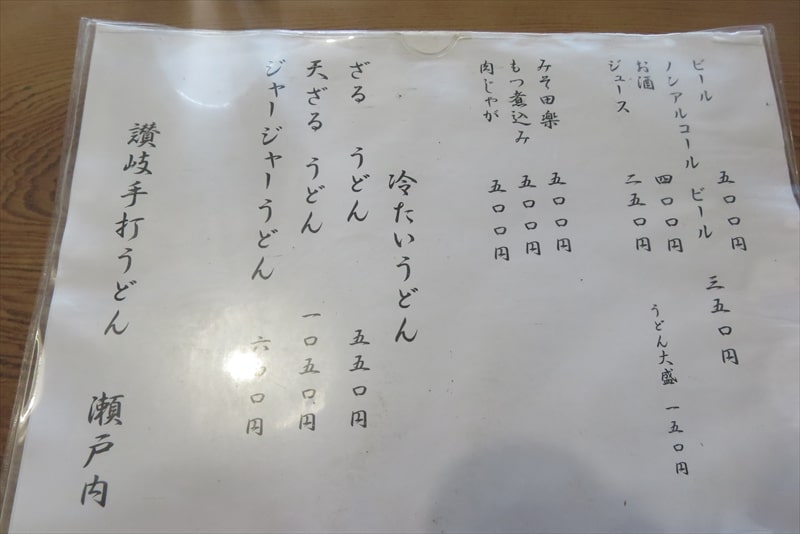 ビール 五〇〇円
ノンアルコール ビール 三五〇円
お酒 四〇〇円
ジュース 二五〇円
うどん大盛 一五〇円
みそ田楽 五〇〇円
もつ煮込み 五〇〇円
肉じゃが 五〇〇円
冷たいうどん
ざる うどん 五五〇円
天ざる うどん 一〇五〇円
ジャージャーうどん
讃岐手打うどん 瀬戸内